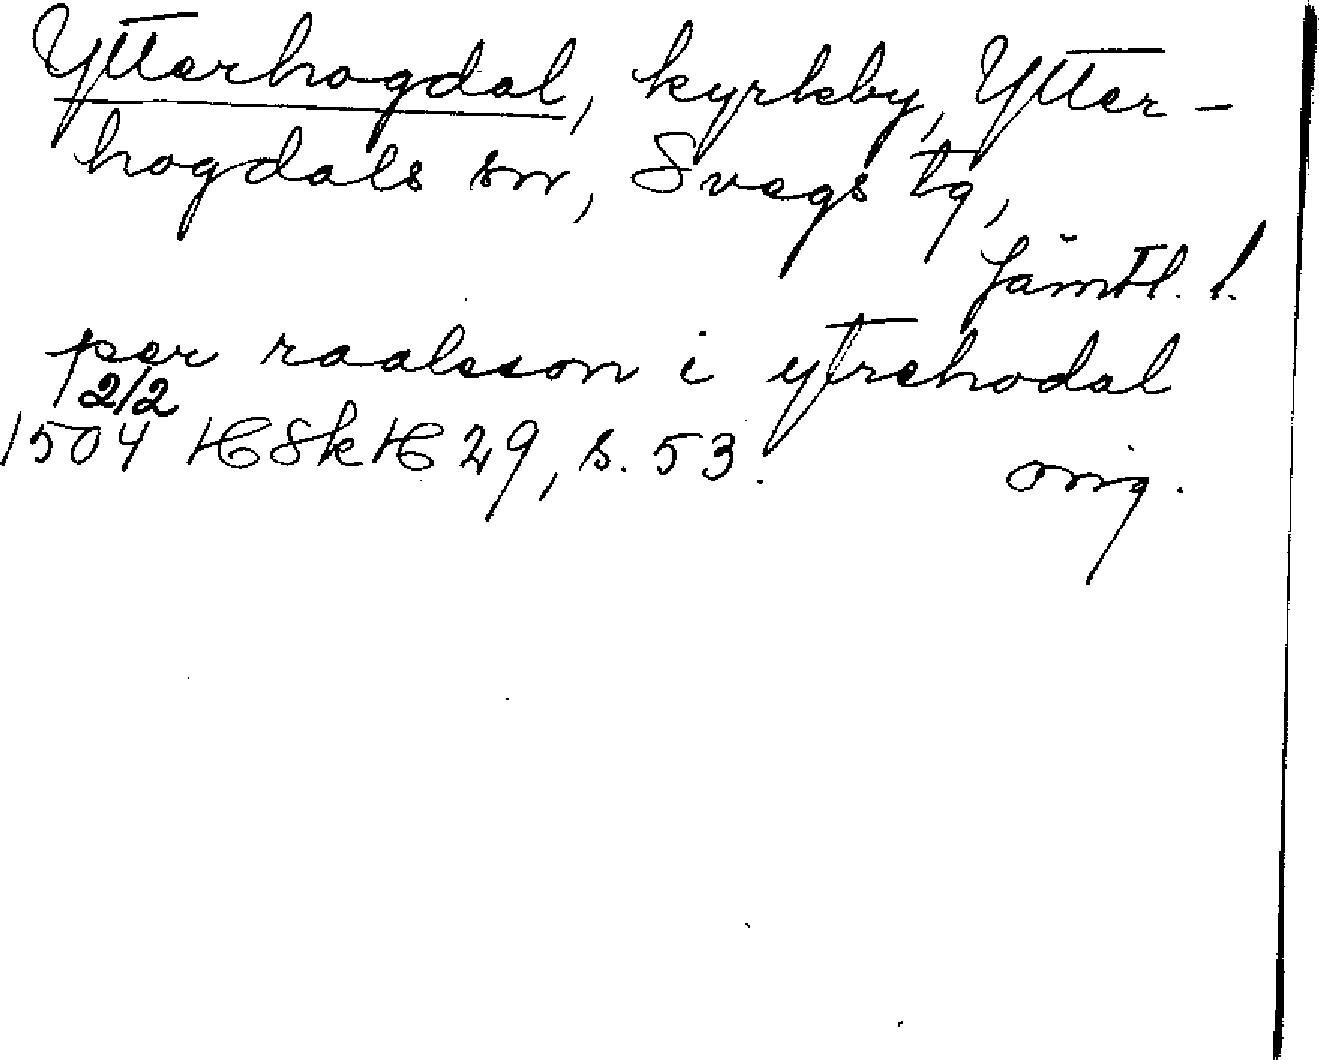 Ytterhogdal, kyrkby, Ytter-
hogdals sn, Svegs tg,
Jämtl. l.
per raalsson i ytrehodal
2/2
1504 HSkH 29, s. 53. orig.